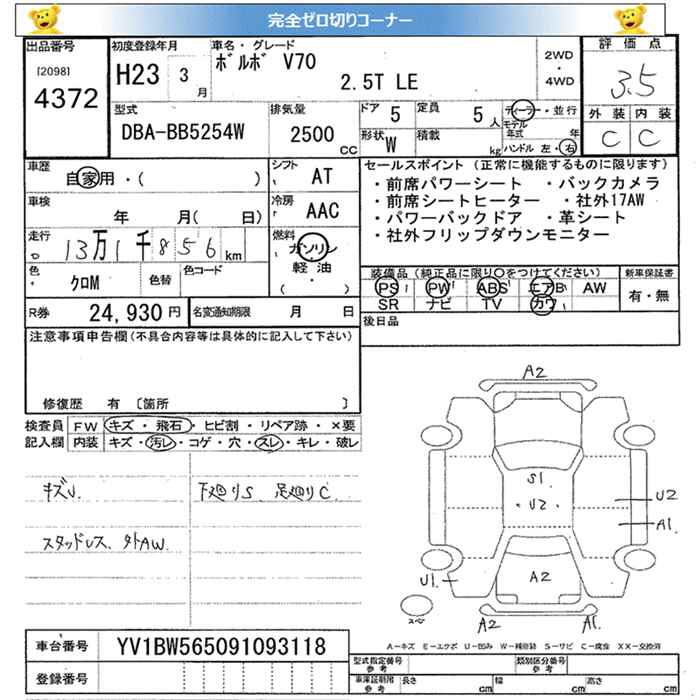 完全ゼロ切りコーナー
出品番号
[2098]
4372
初度登録年月
H23 3 月
車名・グレード
ボルボ V70
2.5T LE
2WD
・
4WD
評価点
3.5
型式
DBA-BB5254W
排気量
2500 CC
ドア 5
定員 5 人
形状 W
積載 kg
ディーラー・並行
モデル
年式 年
ハンドル 左・右
外装 内装
C C
車歴
自家用・( )
シフト
AT
車検
年 月( 日)
冷房
AAC
走行
13万1千856km
燃料
ガソリン
・
軽油
( )
色
クロM
色替
色コード
R券 24,930 円
名変通知期限 月 日
セールスポイント (正常に機能するものに限ります)
・前席パワーシート ・バックカメラ
・前席シートヒーター ・社外17AW
・パワーバックドア ・革シート
・社外フリップダウンモニター
装備品 (純正品に限り○をつけてください)
PS PW ABS エアB AW
SR ナビ TV カワ
新車保証書
有・無
後日品
注意事項申告欄(不具合内容等は具体的に記入して下さい)
修復歴 有 〔箇所 〕
検査員
記入欄
FW キズ・飛石・ヒビ割・リペア跡・×要
内装 キズ・汚レ・コゲ・穴・スレ・キレ・破レ
キズU.
下廻りS 足廻りC.
スタッドレス、外AW.
A2
S1
・U2・
U2
A1.
U1.
A2
スペ
A2
A1
A-キズ E-エクボ U-凹み W-補修跡 S-サビ C-腐食 XX-交換済
車台番号 YV1BW565091093118
登録番号
型式指定番号
参考
類別区分番号
参考
車庫証明用
参考
長さ cm
幅 cm
高さ cm